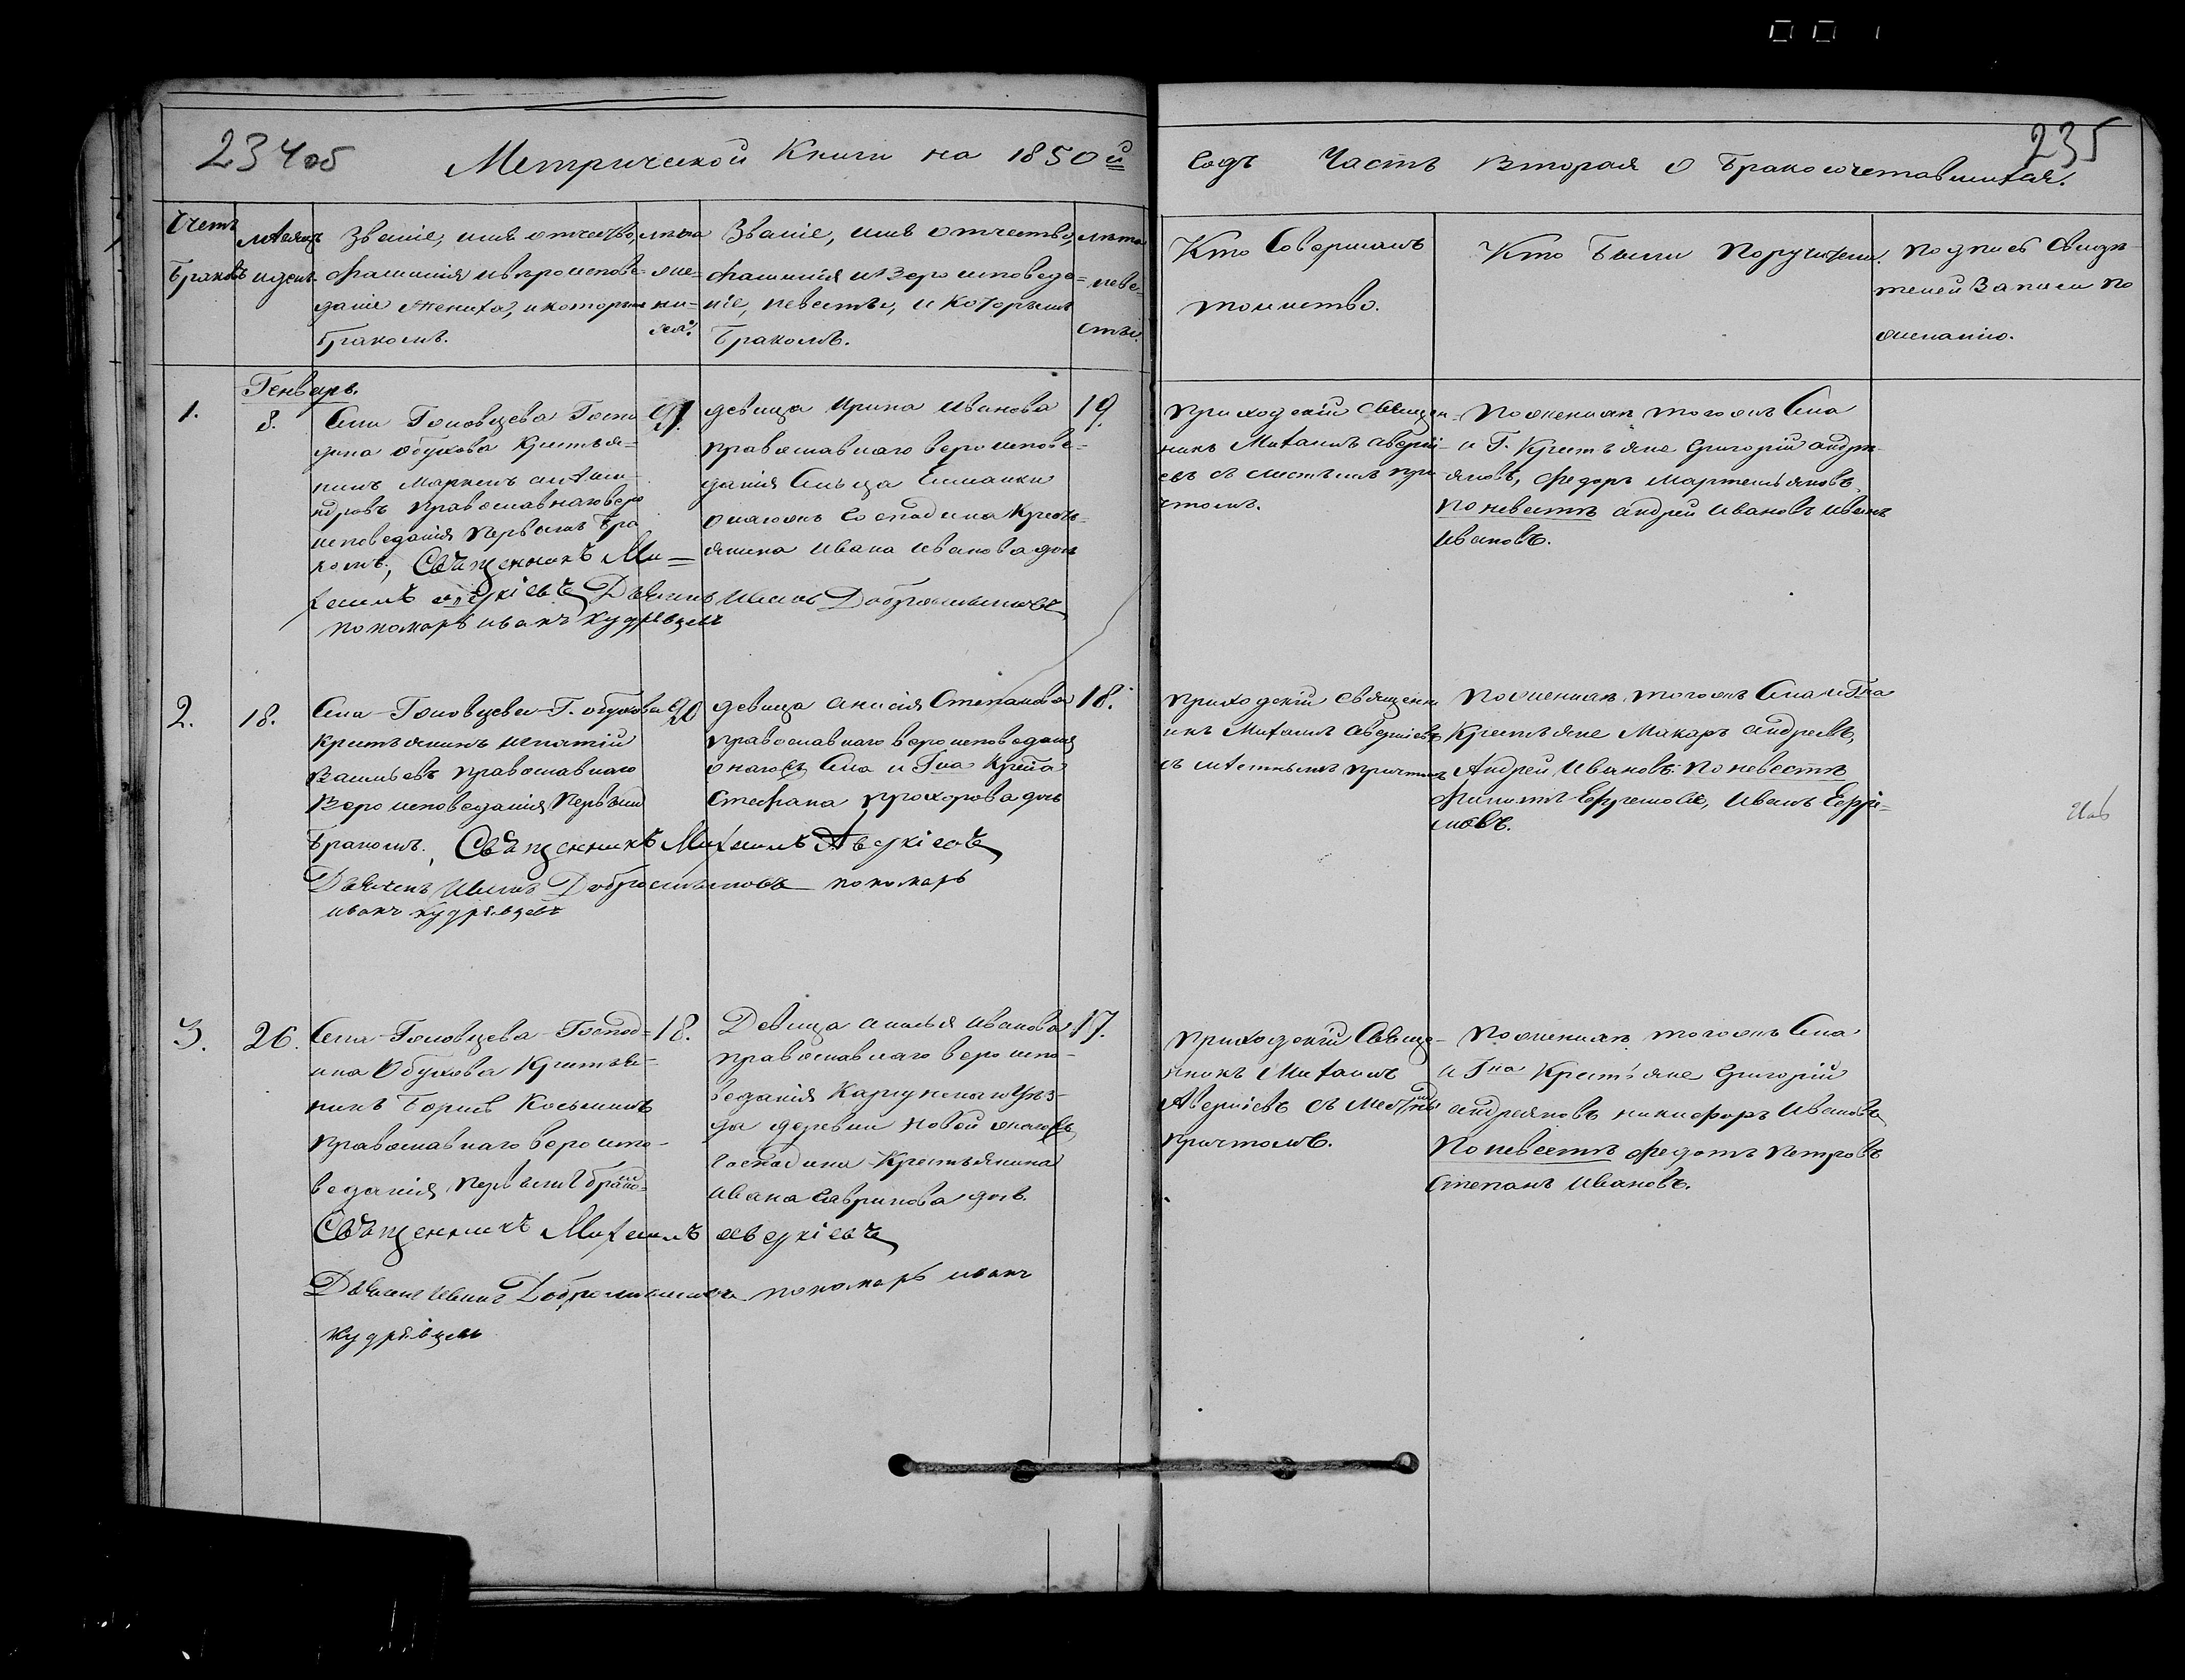 234об
Метрической Книги на 1850й
Годъ Часть Вторая О Бракосочетавшихся.
235
Счетъ
Браковъ
мѣсяцъ
и день.
Званіе, имя отчество,
фамилія и вѣроисповѣ=
даніе жениха, и которым
бракомъ.
лѣта
же=
ни=
ха.
Званіе, имя отчество,
фамилія и вѣроисповеда=
ніе, невесты, и которымъ
бракомъ.
лѣта
неве=
сты.
Кто Совершалъ
таинство.
Кто Были Поручители.
подпись свидѣ
телей Записи по
желанію.
Генварь.
1.
8.
Села Головцева Госпо
дина Обухова Крестья=
нинъ
православнаго веро
исповеданія первымъ бра
комъ, Священникъ Ми=
хаилъ Аверкіевъ Дьячекъ Иванъ Добросмысловъ
пономарь иванъ кудрявцевъ
девица Ирина Иванова
православнаго вероиспове=
данія Сельца
онагожъ Господина Кресть=
янина Ивана Иванова дочь
19.
приходскій священ
никъ Михаилъ Аверкі
евъ съ местнымъ при
чтомъ.
по женихѣ тогожъ Села
и Г. Крестьяне Григорій андре
яновъ, Федоръ Мартемьяновъ
по невестѣ андрей Ивановъ Иванъ
Ивановъ.
2.
18.
Села Головцева Г. Обухова
крестьянинъ Игнатій
Васильевъ православнаго
вероисповеданія первымъ
бракомъ. Священникъ Михаилъ Аверкіевъ
Дьячекъ Иванъ Добросмысловъ пономарь
иванъ кудрявцевъ
20
девица Анисія Степанова
православнаго вероисповеданія
онагожъ Села и Гна крна
Стефана Прохорова дочь
18.
приходскій священн
икъ Михаилъ Аверкіевъ
съ мѣстнымъ причтомъ
по женихѣ тогожъ Села и Гна
Крестьяне Макаръ андреевъ,
Андрей Ивановъ: по невестѣ
Филиппъ Ефремовъ, Иванъ Ефре=
мовъ.
3.
26.
Села Головцева Господ=
ина Обухова Крестья=
нинъ Борисъ Косьминъ
православнаго вероиспо=
веданія первымъ бракомъ
Священникъ Михаилъ Аверкіевъ
Дьячекъ Иванъ Добросмысловъ пономарь иванъ
кудрявцевъ
18.
Девица Иванова
православнаго вероиспо=
веданія Карсунскаго Уѣз=
да деревни Новой онагожъ
Господина Крестьянина
Ивана Гаврилова дочь.
17.
приходскій Свяще=
нникъ Михаилъ
Аверкіевъ съ местнымъ
причтомъ.
по женихѣ тогожъ Села
и Гна Крестьяне Григорій
андреяновъ никифоръ Ивановъ
по невестѣ Федотъ Петровъ
Степанъ Ивановъ.